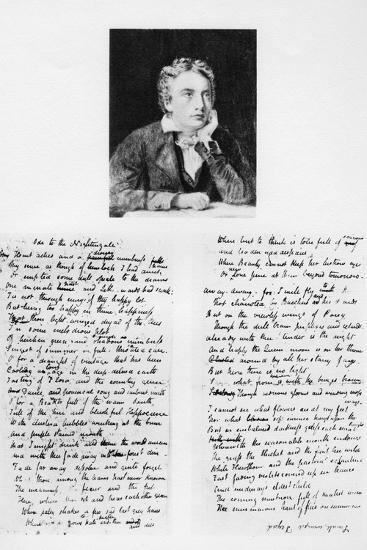 Ode to the Nightingale
Heart aches and a numbness falls
My sense as though of hemlock I had drunk
Or emptied some dull opiate to the drains
One minute past and Lethe wards had sunk
Tis not through envy of thy happy lot
But being too happy in thine happiness
That thou light winged dryad of the trees
In some melodious plot
Of beechen green and shadows numberless
Singest of summer in full-throated ease.
O for a draught of vintage that has been
Cooling an age in the deep delved earth
Tasting of Flora and the country green
And Dance, and provencal song and sunburnt mirth
O for a Beaker full of the warm South
Full of the true and blushful Hippocrene
With cluster'd bubbles winking at the brim
And purple stained mouth
That I might drink and leave the world unseen
And with thee fade away into the forest dim
Fade far away dissolve and quite forget
What thou among the leaves hast never known
The weariness, the fever and the fret
Here, where men sit and hear each other groan
Where palsy shakes a few sad last grey hairs
Where youth grows pale and thin and
Where but to think is to be full of sorrow
and leaden eyed despairs
Where Beauty cannot keep her lustrous eyes
Or new love pine at them beyond tomorrow.
Away-away-for I will fly
Not charioted by Bacchus and his
But on the viewless wings of Poesy
Though the dull brain perplexes and retards
Already with thee tender is the night
And haply the Queen moon is on her throne
around by all her starry fays
But here there is no light
what from is with the breezes blown
Through verdurous glooms and winding ways
I cannot see what flowers are at my feet
Nor what incense hangs upon the
But in embalmed darkness guess each sweet
the seasonable month endows
The grass the thicket and the fruit tree wild
White Hawthorn and the pastoral eglantine
Fast fading violets cover'd up in leaves
And midmay's eldest child
The coming muskrose full of
The murmurous haunt of flies on summer